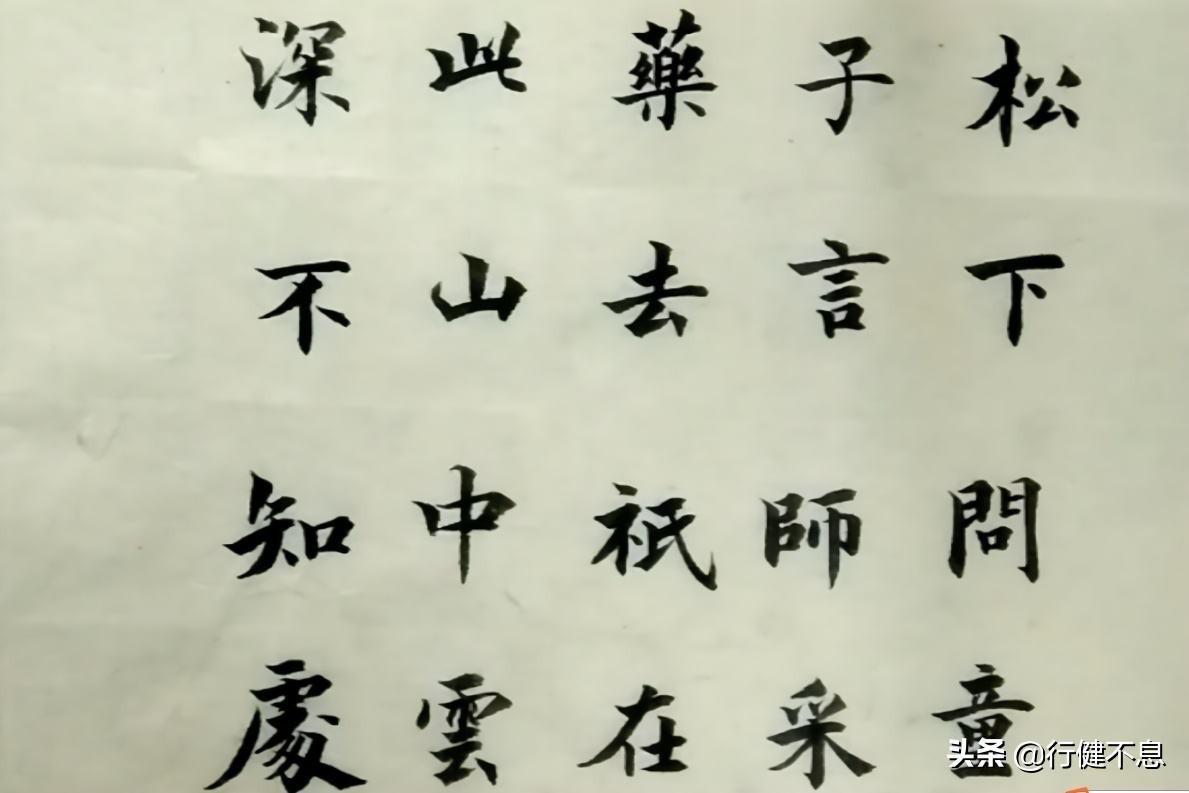 松下問童
子言師采
藥去祇在
此山中雲
深不知處
头条 @行健不息